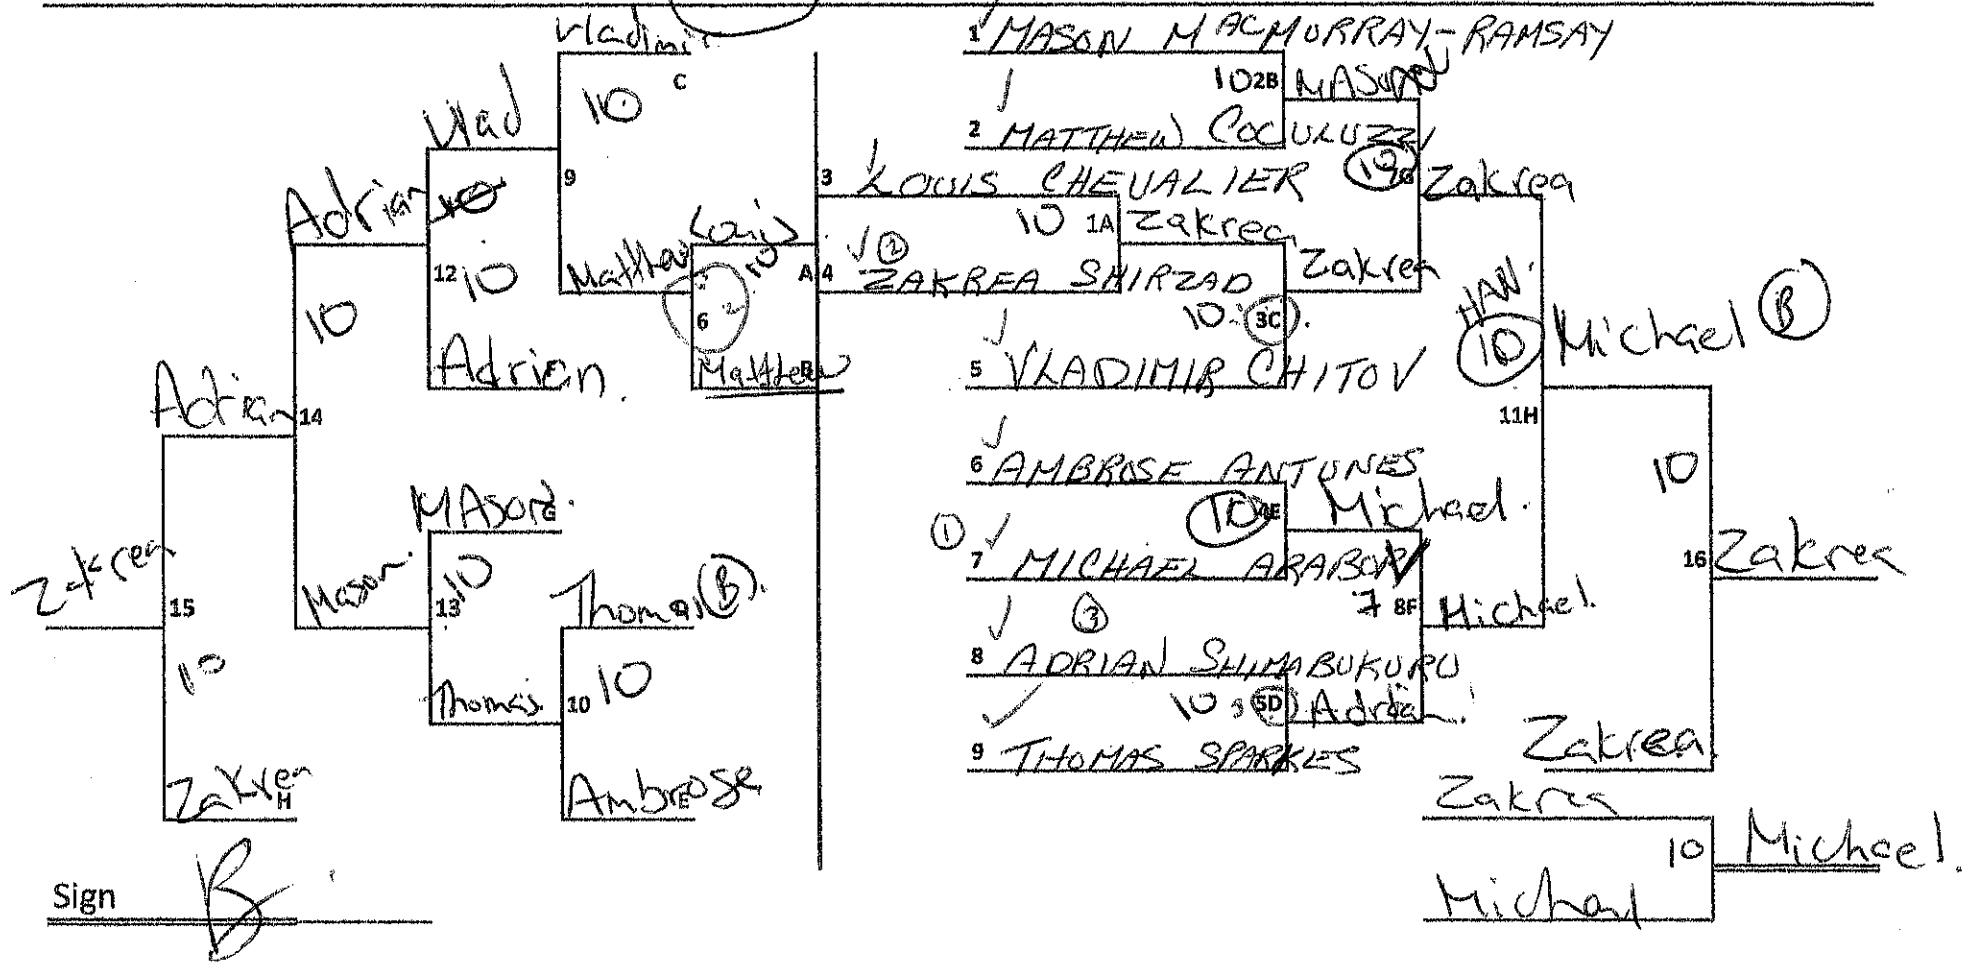 Vladimir
C
10
Vlad
9
Adrian
10
12
10
Adrian
10
Matthew
Louis
10
6
Matthew
B
Adrian
14
Mason
G
Zakrea
15
10
Mason
13
10
Thomas
(B)
Thomas
10
10
Ambrose
E
Zakrea
H
Sign
B
1 MASON MACMURRAY-RAMSAY
10 2B MASON
2 MATTHEW COCULUZZI
3 LOUIS CHEVALIER
10 Zakrea
10 1A Zakrea
A 4 ② ZAKREA SHIRZAD
Zakrea
10 3C
5 VLADIMIR CHITOV
HAN
10
Michael (B)
11H
6 AMBROSE ANTUNES
10 4E Michael
① 7 MICHAEL ARABON
③
7 8F Michael
8 ADRIAN SHIMABUKURU
10 5D Adrian
9 THOMAS SPARKES
10
16 Zakrea
Zakrea
Zakrea
10 Michael
Michael